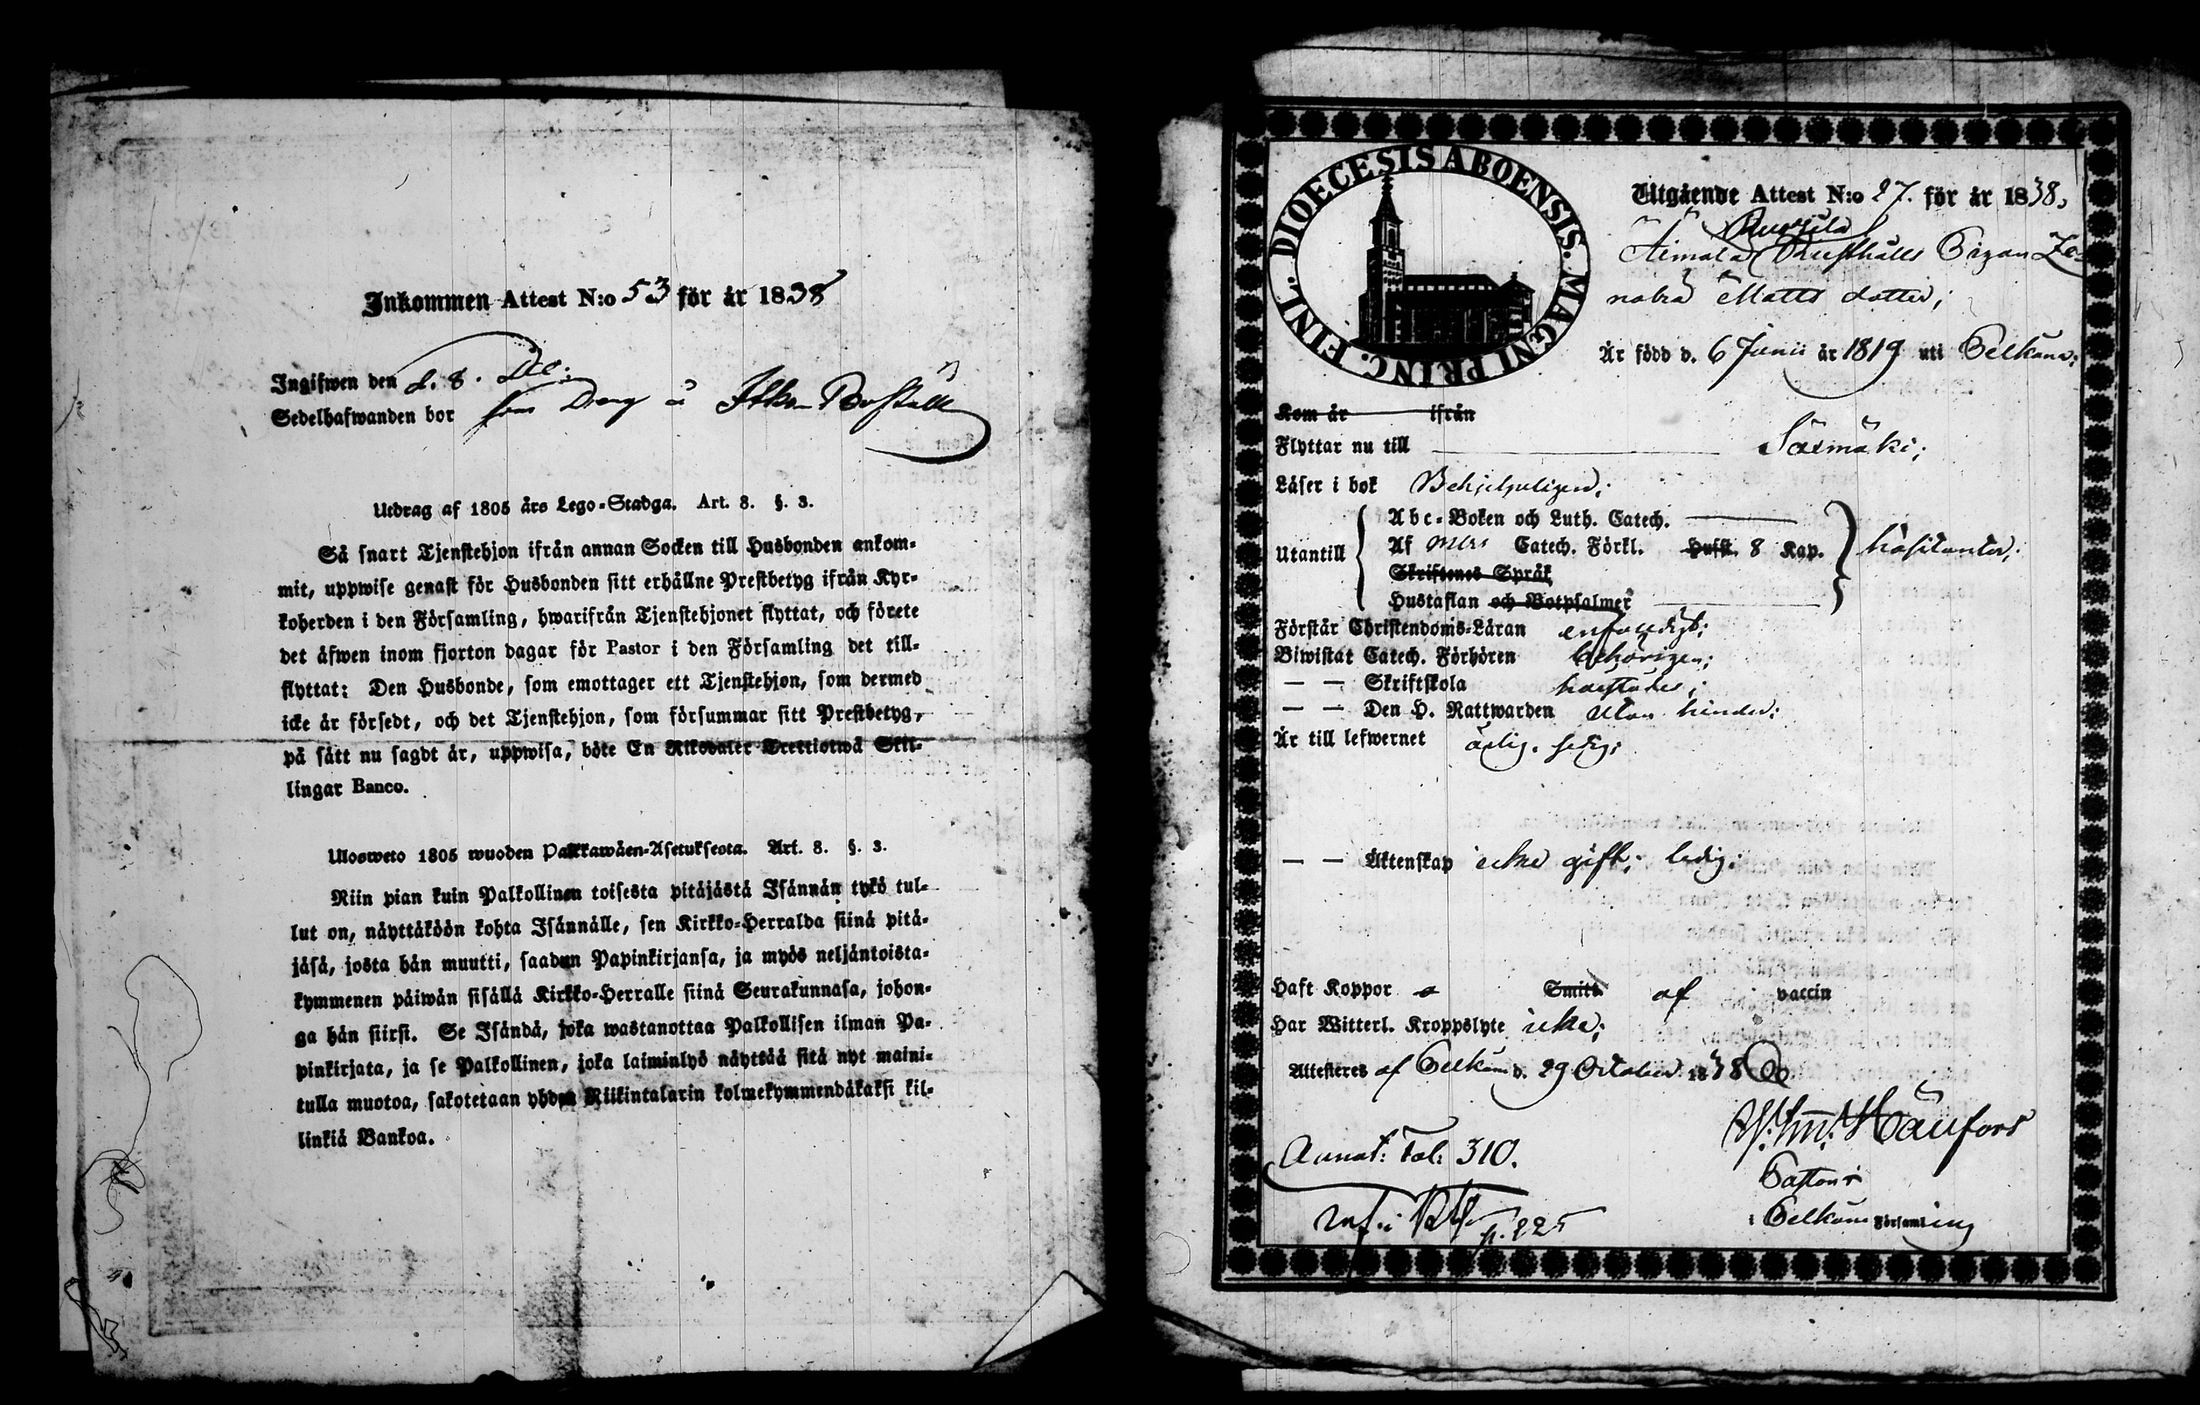 Inkommen Attest N:o 53 för år 1838
Ingifwen den d. 8. Dec:
Sedelhafwanden bor som Dreng å
Utdrag af 1805 års Lego-Stadga. Art. 8. §. 3.
Så snart Tjenstehjon ifrån annan Socken till Husbonden ankom-
mit, uppwise genast för Husbonden sitt erhållne Prestbetyg ifrån Kyr-
koherden i den Församling, hwarifrån Tjenstehjonet flyttat, och förete
det äfwen inom fjorton dagar för Pastor i den Församling det till-
flyttat: Den Husbonde, som emottager ett Tjenstehjon, som dermed
icke är försedt, och det Tjenstehjon, som försummar sitt Prestbetyg,
på sätt nu sagdt är, uppwisa, böte En Riksdaler Trettiotwå Skil-
lingar Banco.
Ulosweto 1805 wuoden Palkkawäen-Asetuksesta. Art. 8. §. 3.
Niin pian kuin Palkollinen toisesta pitäjästä Isännän tykö tul-
lut on, näyttäköön kohta Isännälle, sen Kirkko-Herralda siinä pitä-
jäsä, josta hän muutti, saadun Papinkirjansa, ja myös neljäntoista-
kymmenen päiwän sisällä Kirkko-Herralle siinä Seurakunnasa, johon-
ga hän siirsi. Se Isändä, joka wastanottaa Palkollisen ilman Pa-
pinkirjata, ja se Palkollinen, joka laiminlyö näyttää sitä nyt maini-
tulla muotoa, sakotetaan yhden Riikintalarin kolmekymmendäkaksi kil-
linkiä Bankoa.
DIOECESIS ABOENSIS. MAGNI PRINC. FINL.
Utgående Attest N:o 27. för år 1838,
Äimälä Rusthålls Pigan Ze-
nobia Matts dotter;
Är född d. 6 Junii år 1819 uti Pelkäne;
Kom år ifrån
Flyttar nu till Säxmäki;
Läser i bok Behjelpeligen;
Utantill
Abc-Boken och Luth. Catech.
Af mers Catech. Förkl. Hufst. 8 Kap. häsitanter;
Skriftenes Språk
Hustaflan och Botpsalmer
Förstår Christendoms-Läran enfaldigt;
Biwistat Catech. Förhören behörigen;
— — Skriftskola
— — Den H. Nattwarden utan hinder;
Är till lefwernet ärlig, sedig;
— — Äktenskap icke gift; ledig;
Haft Koppor Smitt af vaccin
Har Witterl. Kroppslyte icke;
Attesteres af Pelkäne d. 29 October 1838
Annot: Fol: 310.
Pastor
i Pelkäne Församling
p. 225